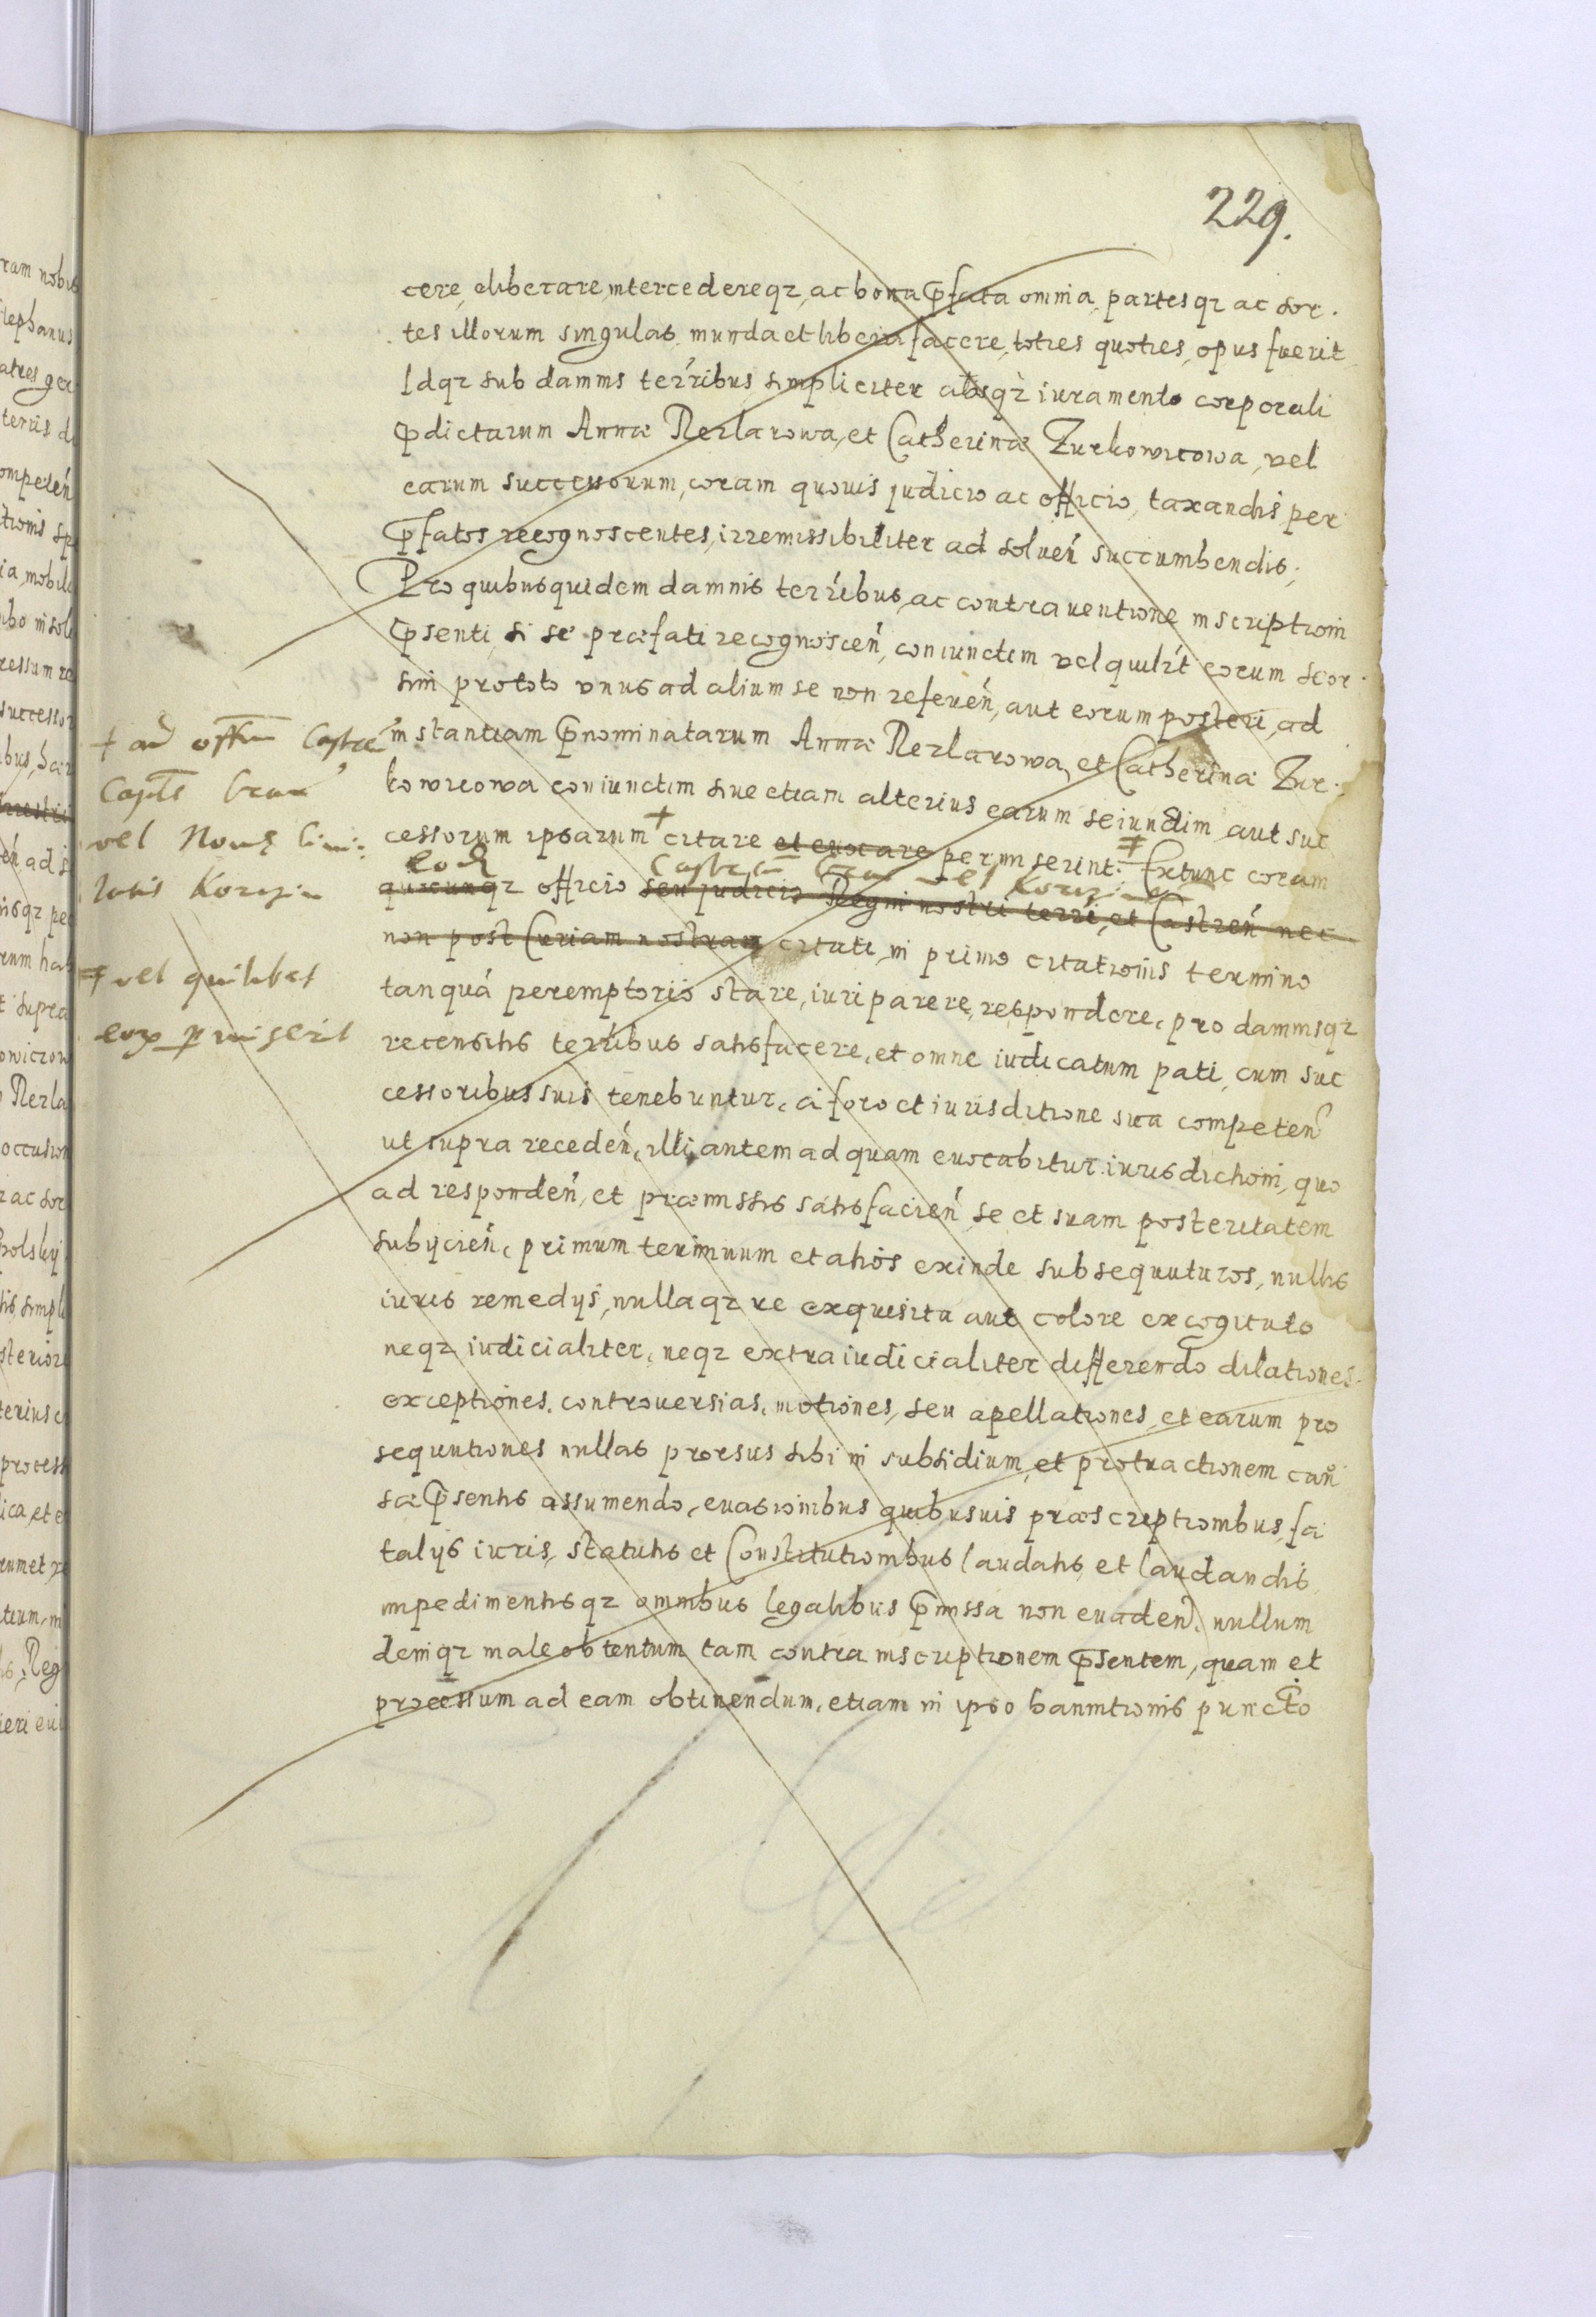 229.
cere, eliberare, intercedereqz, ac bona p̃fata omnia, partesqz ac sor.
tes illorum singulas munda et libera facere, toties quoties opus fuerit
Idqz sub damnis terr̃ibus simpliciter absqz iuramento corporali
p̃dictarum Annæ Rerlarowa, et Catherinæ Zurkowicowa, vel
earum successorum, coram quouis judicio ac officio, taxandis per
p̃fatos recognoscentes, irremissibiliter ad soluen̄ succumbendis;
Pro quibusquidem damnis terr̃ibus, ac contrauentione inscriptioni
p̃senti, si se præfati recognoscen̄, coniunctim vel quilit̄ eorum seor
sim pro toto vnus ad alium se non referen̄, aut eorum posteri, ad
instantiam p̃nominatarum Annæ Rerlarowa, et Catherinæ Zur:
kowicowa coniunctim siue etiam alterius earum seiunctim aut suc
cessorum ipsarum + citare et euocare permiserint: ‡ Extunc coram
eod̄ Castren̄ vel Korczin̄
quocunqz officio seu judicio Regni nostri terr̃i, et Castren̄ nec
non post Curiam nostram citati, in primo citationis termino
tanquá peremptorio stare, iuri parere, respondere, pro damnisqz
recensitis terr̃ibus satisfacere, et omne iudicatum pati, cum suc
cessoribus suis tenebuntur, a foro et iurisditione sua competen̄
ut supra receden̄, illi, autem ad quam euocabitur iurisdictioni, quo
ad responden̄, et præmissis satisfacien̄ se et suam posteritatem
subijcien̄, primum terminum et alios exinde subsequuturos, nullis
iuris remedijs, nullaqz re exquisita aut colore excogitato
neqz iudicialiter, neqz extraiudicialiter differendo dilationes.
exceptiones, controuersias, motiones, seu apellationes, et earum pro
sequutiones nullas prorsus sibi in subsidium, et protractionem cau
sæ p̃sentis assumendo, euasionibus quibusuis præscriptionibus, fa
talijs iuris, statutis et Constitutionibus laudatis, et laudandis
impedimentisqz omnibus legalibus p̃missa non euaden̄. nullum
deniqz male obtentum tam contra inscriptionem p̃sentem, quam et
processum ad eam obtinendum, etiam in ipso bannitionis puncto
+ ad offm Castren̄
Capts
vel Nouę Ciui:
tatis Korczin
‡ vel quilibet
eorꝝ p̱miserit